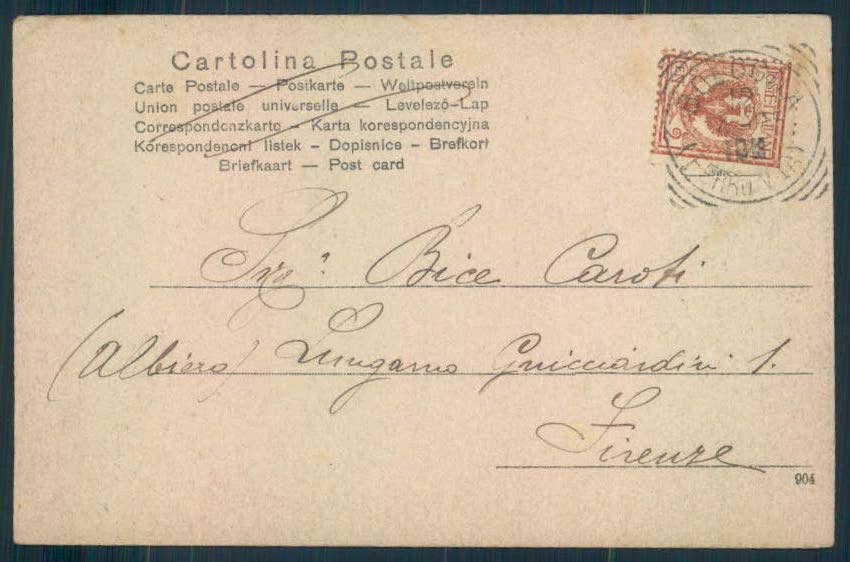 Cartolina Postale
Carte Postale — Postkarte — Weltpostverein
Union postale universelle — Levelezō-Lap
Correspondenzkarte — Karta korespondencyjna
Korespondenoni listek — Dopisnice — Brefkort
Briefkaart — Post card
Sig.ª Bice Caroti
(Albiero) Lungarno Guicciardini 1.
Firenze
904